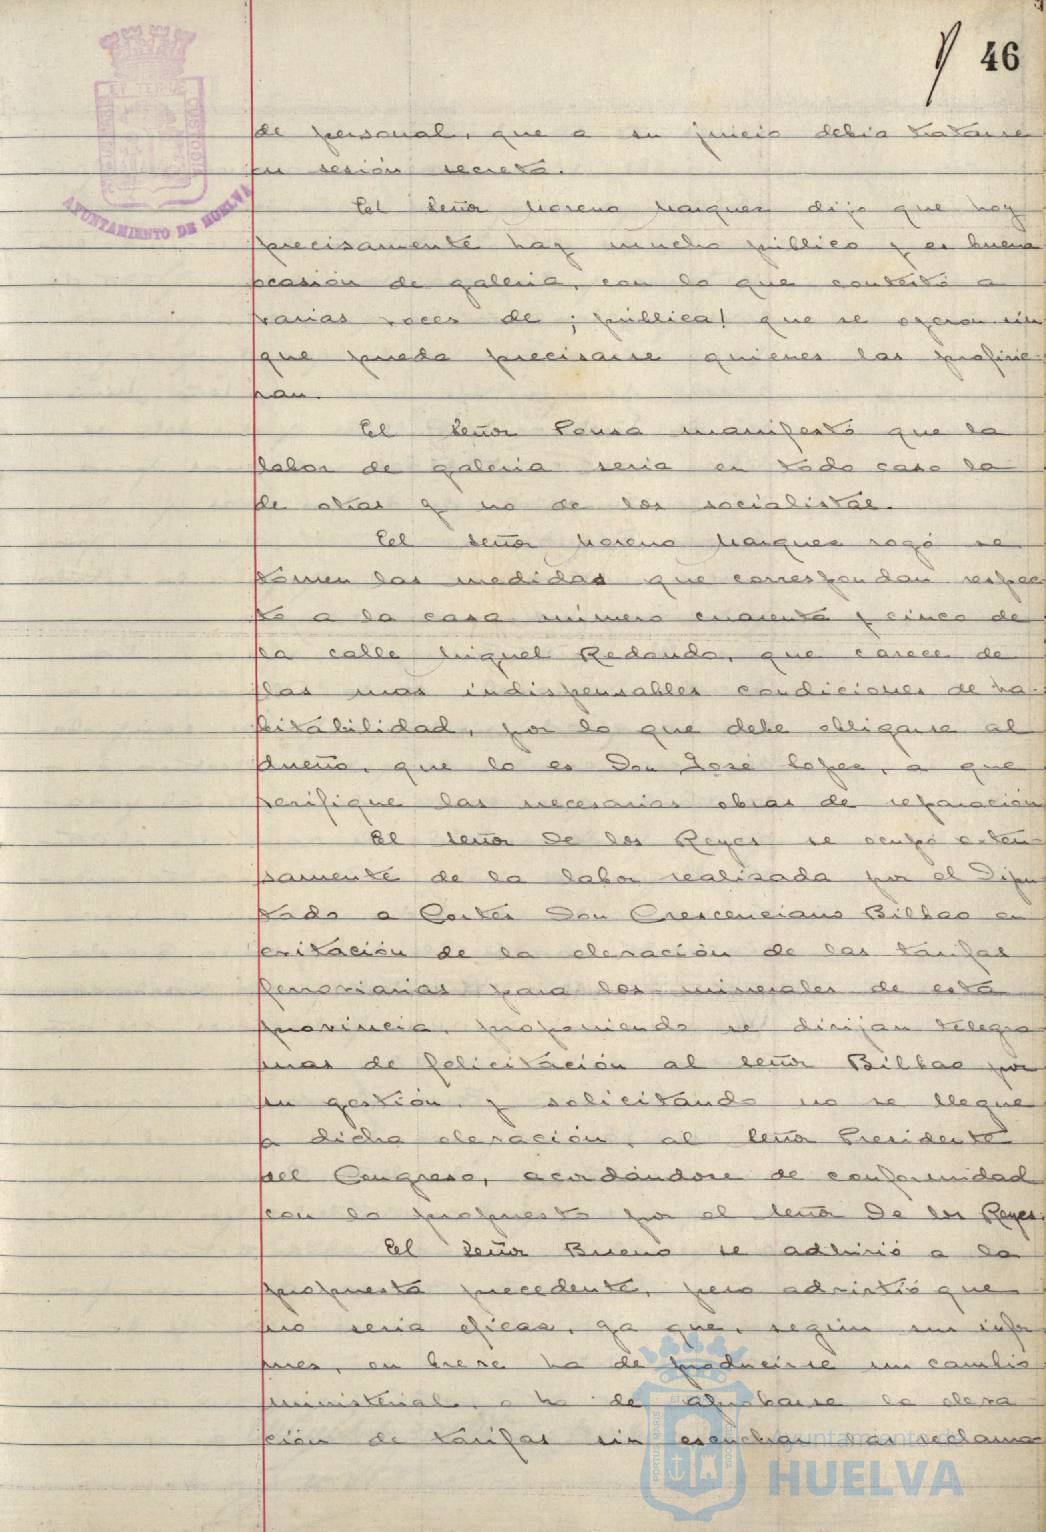 46
de personal, que a su juicio debia tratarse
en sesión secreta.
El Señor Moreno Marquez dijo que hoy
precisamente hay mucho público y es buena
ocasión de galeria, con lo que contestó a
varias voces de ¡pública! que se oyeron sin
que pueda precisarse quienes las profirie-
ran.
El Señor Ponsa manifestó que la
labor de galeria seria en todo caso la
de otros y no de los socialistas.
El señor Moreno Marquez rogó se
tomen las medidas que correspondan respec
to a la casa número cuarenta y cinco de
la calle Miguel Redondo, que carece de
las mas indispensables condiciones de ha-
bitabilidad, por lo que debe obligarse al
dueño, que lo es Don José Lopez, a que
verifique las necesarias obras de reparación
El señor De los Reyes se ocupó exten-
samente de la labor realizada por el Dipu
tado a Cortes Don Crescenciano Bilbao en
evitación de la elevación de las tarifas
ferroviarias para los minerales de esta
provincia, proponiendo se dirijan telegra
mas de felicitación al señor Bilbao por
su gestión, y solicitando no se llegue
a dicha elevación, al Señor Presidente
del Congreso, acordándose de conformidad
con lo propuesto por el señor De los Reyes.
El Señor Bueno se adhirió a la
propuesta precedente, pero advirtió que
no seria eficaz, ya que, según sus infor
mes, en breve ha de producirse un cambio
ministerial, o ha de aprobarse la eleva
ción de tarifas sin escuchar las reclama-
AYUNTAMIENTO DE HUELVA
Ayuntamiento de
HUELVA